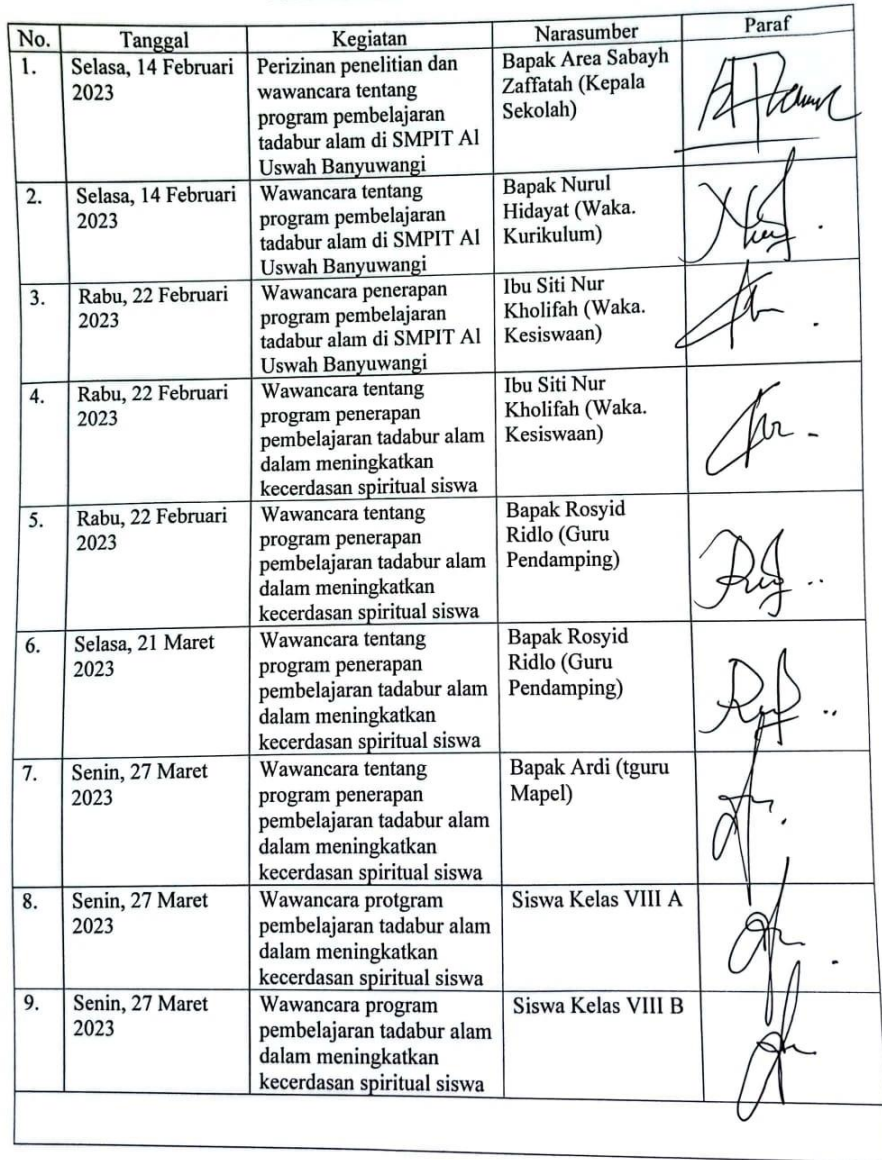 No. Tanggal Kegiatan Narasumber Paraf
1. Selasa, 14 Februari 2023
Perizinan penelitian dan
wawancara tentang
program pembelajaran
tadabur alam di SMPIT Al
Uswah Banyuwangi
Bapak Area Sabayh
Zaffatah (Kepala
Sekolah)
2. Selasa, 14 Februari
2023
Wawancara tentang
program pembelajaran
tadabur alam di SMPIT Al
Uswah Banyuwangi
Bapak Nurul
Hidayat (Waka.
Kurikulum)
3. Rabu, 22 Februari
2023
Wawancara penerapan
program pembelajaran
tadabur alam di SMPIT Al
Uswah Banyuwangi
Ibu Siti Nur
Kholifah (Waka.
Kesiswaan)
4. Rabu, 22 Februari
2023
Wawancara tentang
program penerapan
pembelajaran tadabur alam
dalam meningkatkan
kecerdasan spiritual siswa
Ibu Siti Nur
Kholifah (Waka.
Kesiswaan)
5. Rabu, 22 Februari
2023
Wawancara tentang
program penerapan
pembelajaran tadabur alam
dalam meningkatkan
kecerdasan spiritual siswa
Bapak Rosyid
Ridlo (Guru
Pendamping)
6. Selasa, 21 Maret
2023
Wawancara tentang
program penerapan
pembelajaran tadabur alam
dalam meningkatkan
kecerdasan spiritual siswa
Bapak Rosyid
Ridlo (Guru
Pendamping)
7. Senin, 27 Maret
2023
Wawancara tentang
program penerapan
pembelajaran tadabur alam
dalam meningkatkan
kecerdasan spiritual siswa
Bapak Ardi (tguru
Mapel)
8. Senin, 27 Maret
2023
Wawancara protgram
pembelajaran tadabur alam
dalam meningkatkan
kecerdasan spiritual siswa
Siswa Kelas VIII A
9. Senin, 27 Maret
2023
Wawancara program
pembelajaran tadabur alam
dalam meningkatkan
kecerdasan spiritual siswa
Siswa Kelas VIII B